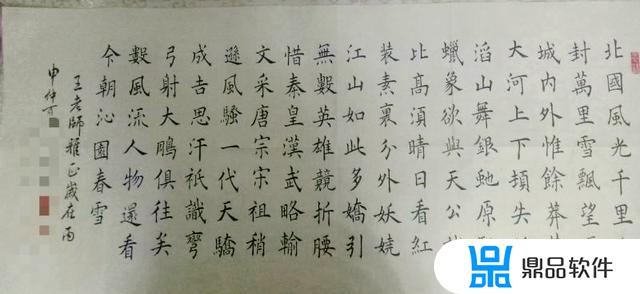 北國風光千里
封萬里雪飄望
城內外惟餘莽
大河上下頓失
滔山舞銀虵原
蠟象欲與天公
比高湏晴日看紅
裝素裹分外妖嬈
江山如此多嬌引
無數英雄競折腰
惜秦皇漢武略輸
文采唐宗宋祖稍
遜風騷一代天驕
成吉思汗祇識彎
弓射大鵰俱往矣
數風流人物還看
今朝沁園春雪
王老師雅正歲在丙
申仲
鼎品软件